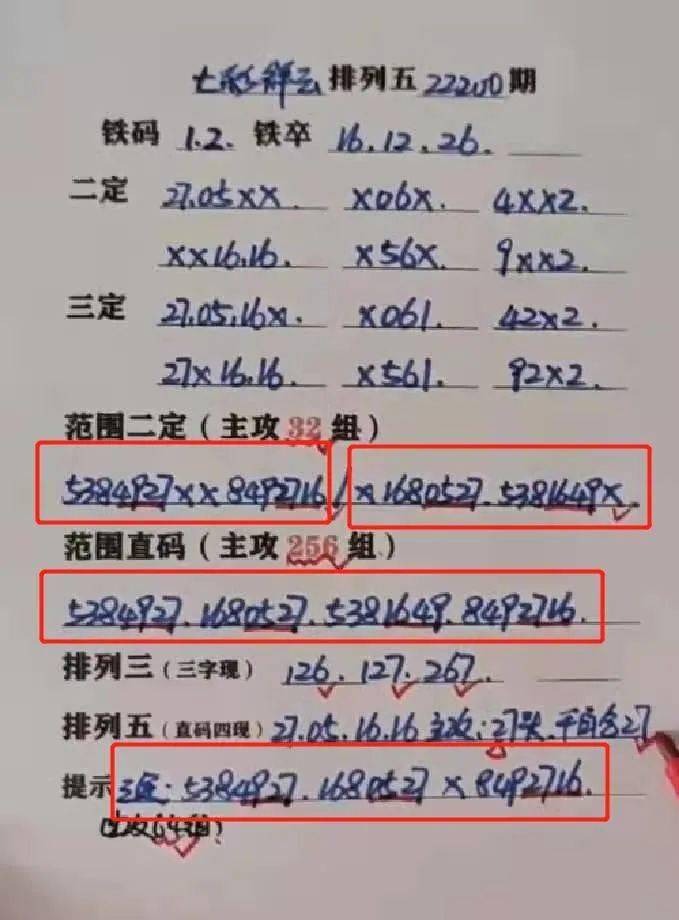 七彩祥云 排列五 22200期
铁码 1.2. 铁卒 16.12.26.
二定 27.05XX. X06X. 4XX2.
XX16.16. X56X. 9XX2.
三定 27.05.16X. X061. 42X2.
27X16.16. X561. 92X2.
范围二定(主攻32组)
5384927XX8492716/X1680527.5381649X.
范围直码(主攻256组)
5384927.1680527.5381649.8492716.
排列三(三字现) 126.127.267.
排列五(直码四现) 27.05.16.16 主攻:27头.千百含27
提示 三定:5384927.1680527X8492716.
主攻64组!